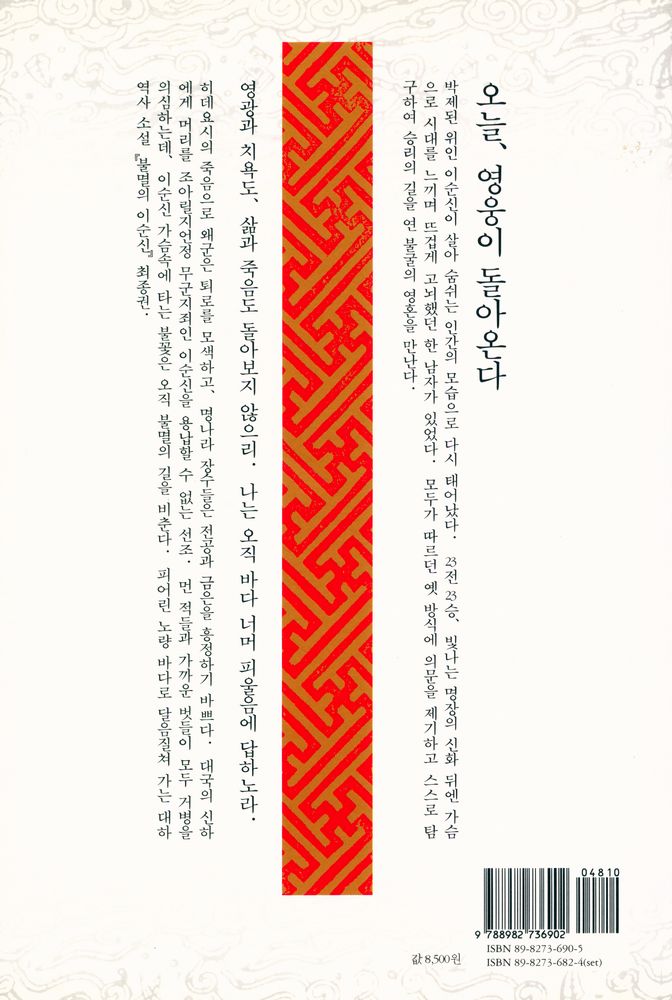 오늘, 영웅이 돌아온다
박제된 위인 이순신이 살아 숨쉬는 인간의 모습으로 다시 태어났다. 23전 23승, 빛나는 명장의 신화 뒤엔 가슴
으로 시대를 느끼며 뜨겁게 고뇌했던 한 남자가 있었다. 모두가 따르던 옛 방식에 의문을 제기하고 스스로 탐
구하여 승리의 길을 연 불굴의 영혼을 만난다.
영광과 치욕도, 삶과 죽음도 돌아보지 않으리. 나는 오직 바다 너머 피울음에 답하노라.
히데요시의 죽음으로 왜군은 퇴로를 모색하고, 명나라 장수들은 전공과 금은을 흥정하기 바쁘다. 대국의 신하
에게 머리를 조아릴지언정 무군지죄인 이순신을 용납할 수 없는 선조. 먼 적들과 가까운 벗들이 모두 거병을
의심하는데, 이순신 가슴속에 타는 불꽃은 오직 불멸의 길을 비춘다. 피어린 노량 바다로 달음질쳐 가는 대하
역사 소설 『불멸의 이순신』 최종권.
04810
9 788982 736902
ISBN 89-8273-690-5
값 8,500원
ISBN 89-8273-682-4(set)